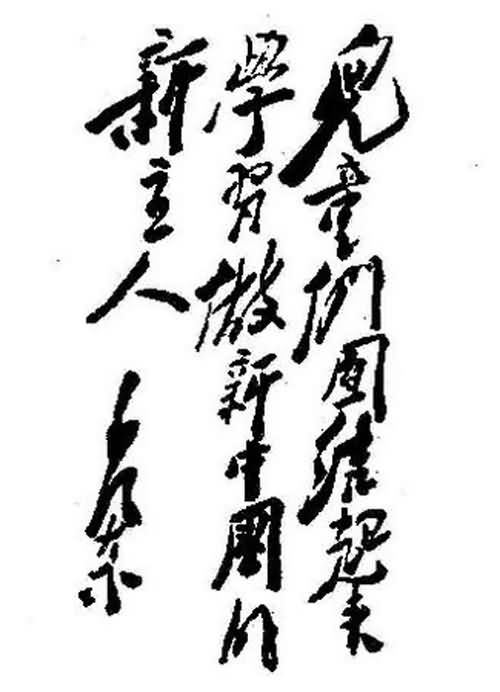 兒童们團結起来
學習做新中國的
新主人
毛澤東